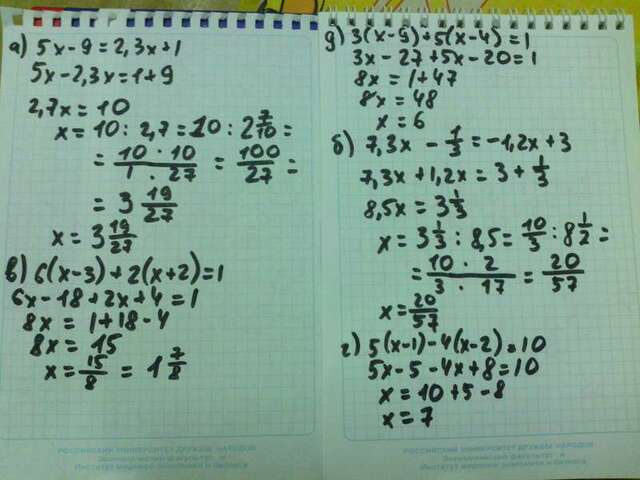 а) 5x-9=2,3x+1
5x-2,3x=1+9
2,7x=10
x=10:2,7=10:2 7/10=
= 10·10/1·27 = 100/27 =
= 3 19/27
x=3 19/27
в) 6(x-3)+2(x+2)=1
6x-18+2x+4=1
8x=1+18-4
8x=15
x=15/8 = 1 7/8
РОССИЙСКИЙ УНИВЕРСИТЕТ ДРУЖБЫ НАРОДОВ
Экономический факультет и
Институт мировой экономики и бизнеса
д) 3(x-9)+5(x-4)=1
3x-27+5x-20=1
8x=1+47
8x=48
x=6
б) 7,3x-1/3=-1,2x+3
7,3x+1,2x=3+1/3
8,5x=3 1/3
x=3 1/3:8,5=10/3:8 1/2=
= 10·2/3·17 = 20/57
x=20/57
г) 5(x-1)-4(x-2)=10
5x-5-4x+8=10
x=10+5-8
x=7
РОССИЙСКИЙ УНИВЕРСИТЕТ ДРУЖБЫ НАРОДОВ
Экономический факультет и
Институт мировой экономики и бизнеса